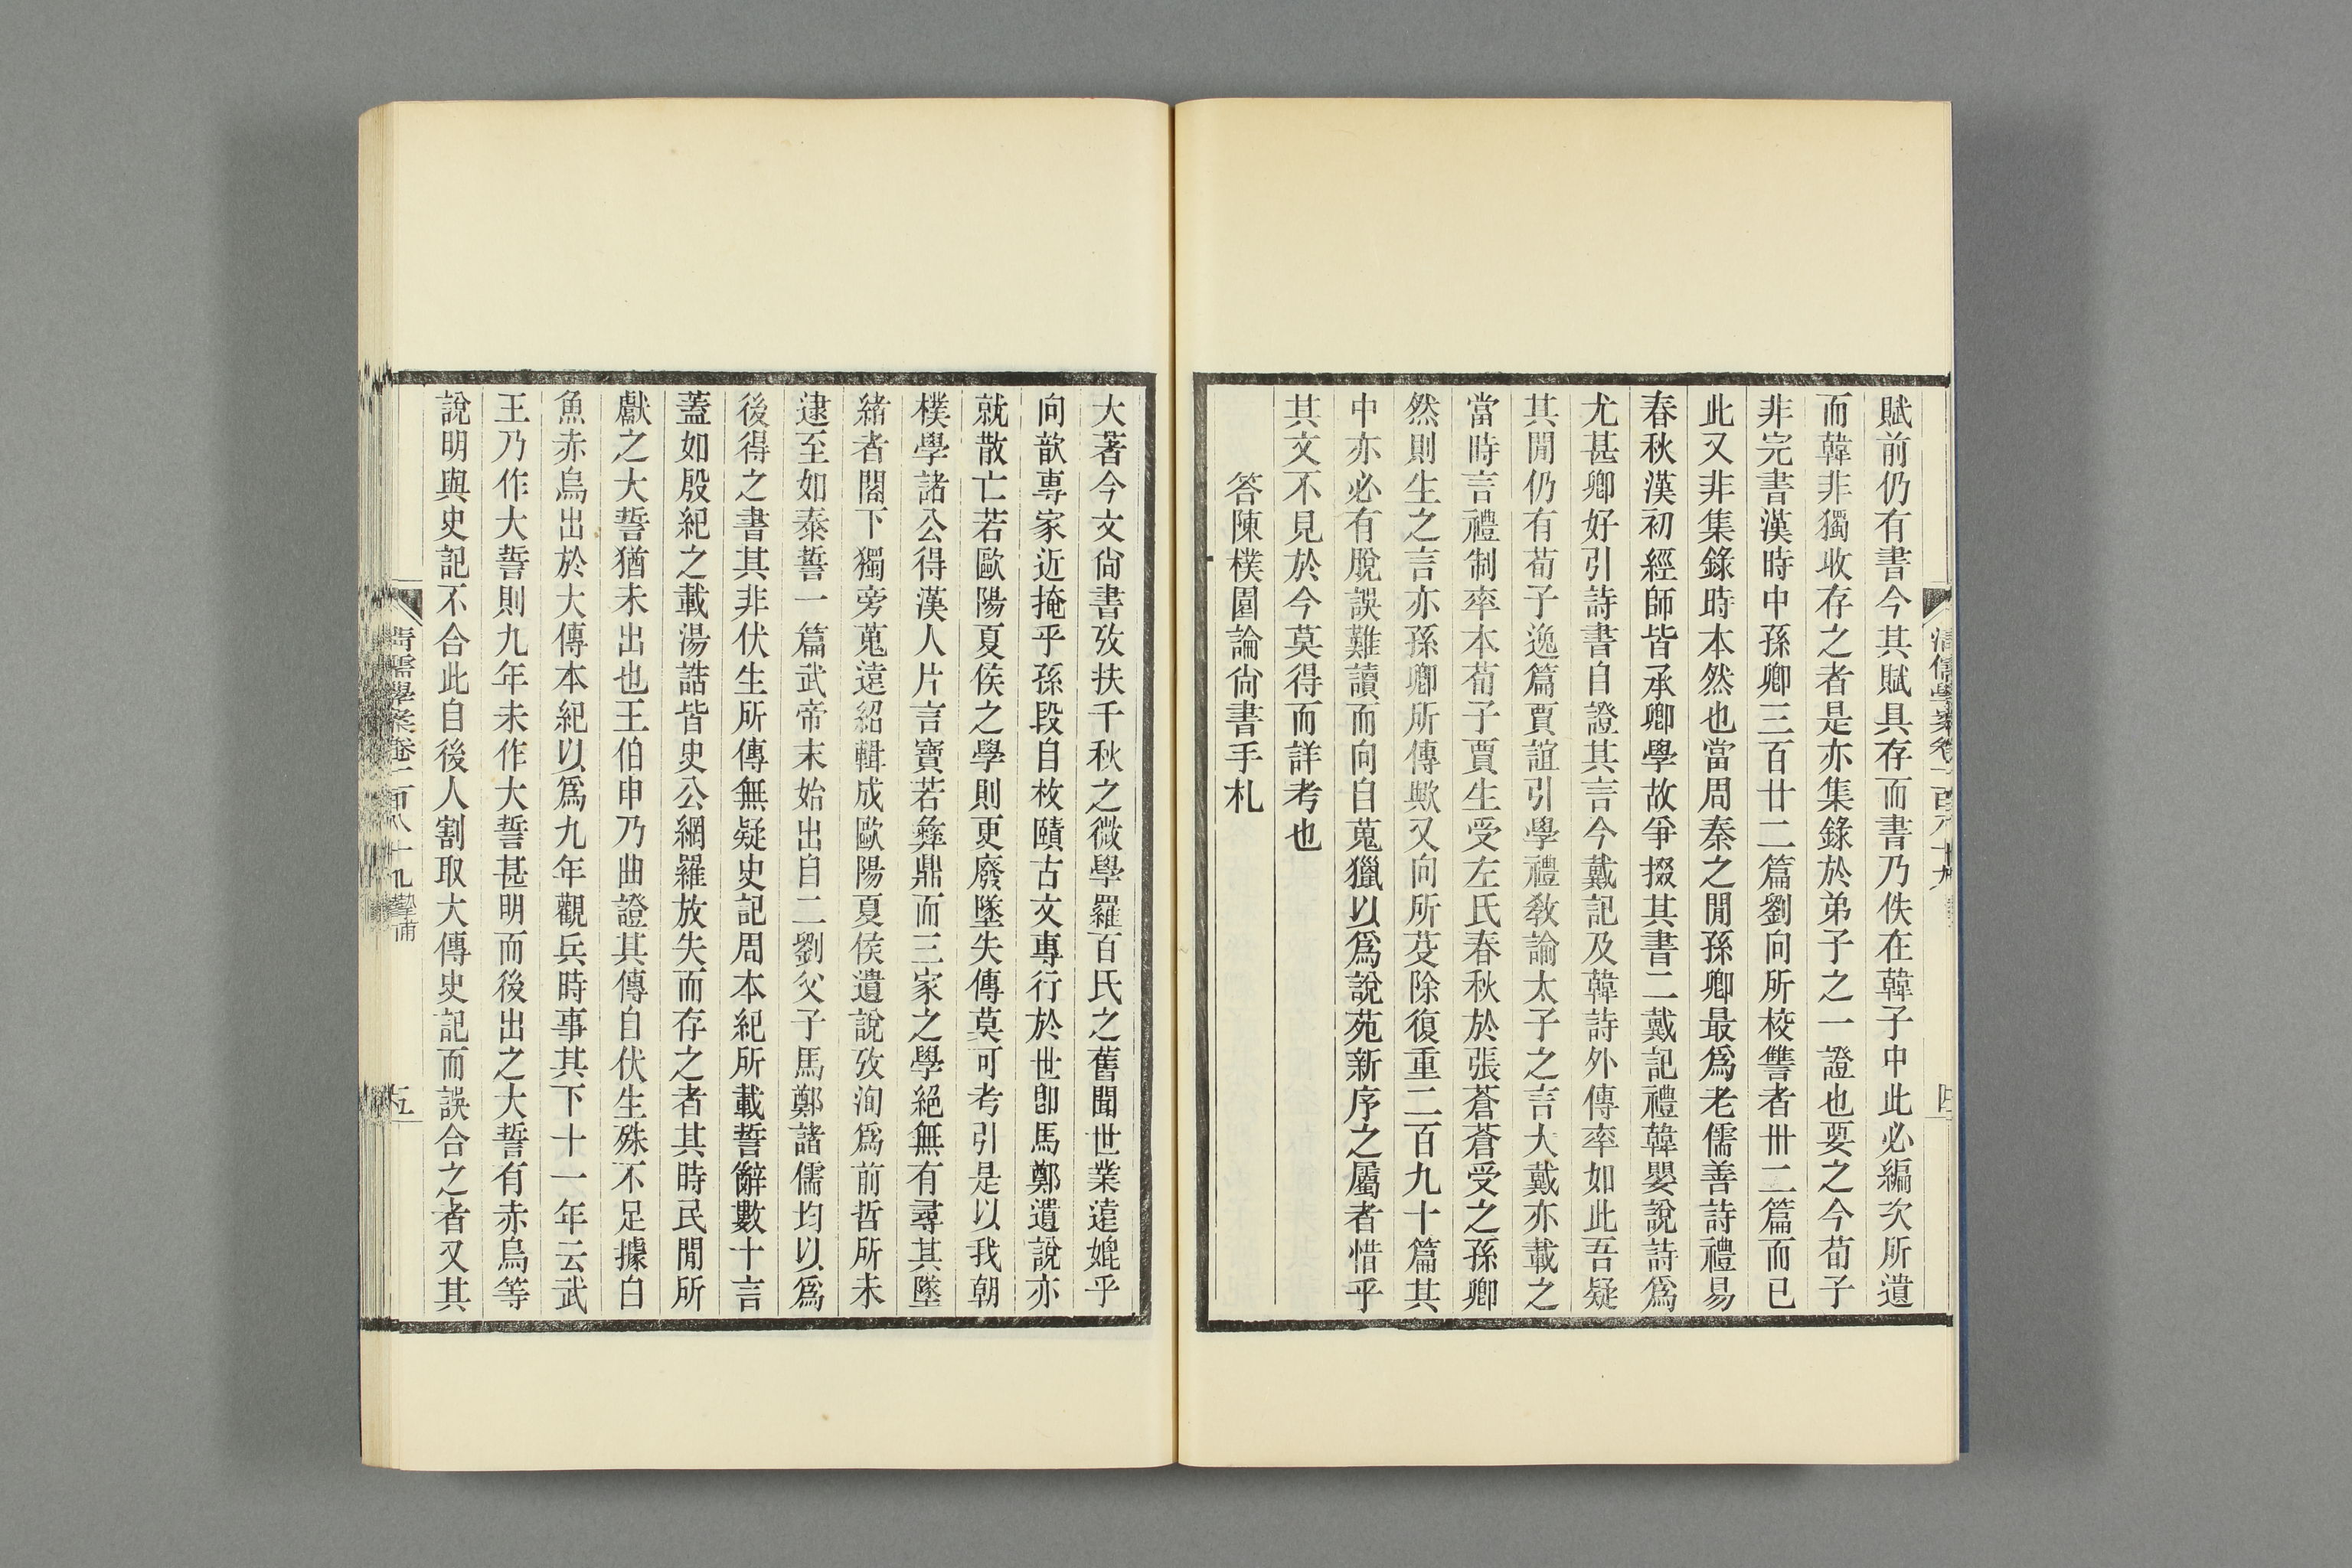 賦前仍有書今其賦具存而書乃佚在韓子中此必編次所遺
而韓非獨收存之者是亦集錄於弟子之一證也要之今荀子
非完書漢時中孫卿三百廿二篇劉向所校讐者卅二篇而已
此又非集錄時本然也當周秦之閒孫卿最爲老儒善詩禮易
春秋漢初經師皆承卿學故爭掇其書二戴記禮韓嬰說詩爲
尤甚卿好引詩書自證其言今戴記及韓詩外傳率如此吾疑
其閒仍有荀子逸篇賈誼引學禮敎論太子之言大戴亦載之
當時言禮制率本荀子賈生受左氏春秋於張蒼蒼受之孫卿
然則生之言亦孫卿所傳歟又向所芟除復重二百九十篇其
中亦必有脫誤難讀而向自蒐獵以爲說苑新序之屬者惜乎
其文不見於今莫得而詳考也
答陳樸園論尙書手札
大著今文尙書攷扶千秋之微學羅百氏之舊聞世業遠媲乎
向歆專家近掩乎孫段自枚賾古文專行於世卽馬鄭遺說亦
就散亡若歐陽夏侯之學則更廢墜失傳莫可考引是以我朝
樸學諸公得漢人片言寶若彝鼎而三家之學絕無有尋其墜
緒者閣下獨旁蒐遠紹輯成歐陽夏侯遺說攷洵爲前哲所未
逮至如泰誓一篇武帝末始出自二劉父子馬鄭諸儒均以爲
後得之書其非伏生所傳無疑史記周本紀所載誓辭數十言
蓋如殷紀之載湯誥皆史公網羅放失而存之者其時民閒所
獻之大誓猶未出也王伯申乃曲證其傳自伏生殊不足據白
魚赤烏出於大傳本紀以爲九年觀兵時事其下十一年云武
王乃作大誓則九年未作大誓甚明而後出之大誓有赤烏等
說明與史記不合此自後人割取大傳史記而誤合之者又其
清儒學案卷一百八十九摯甫
五